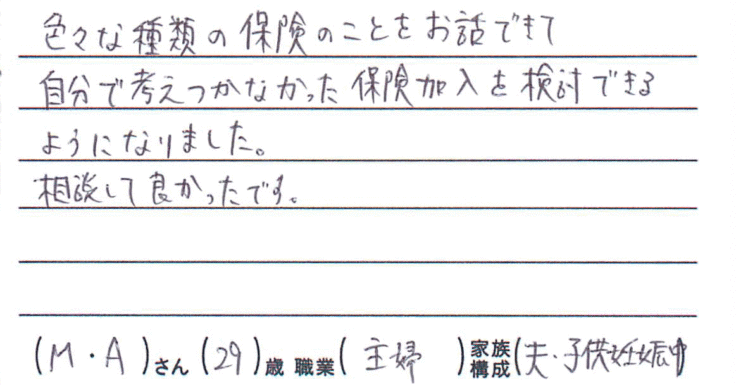 色々な種類の保険のことをお話できて
自分で考えつかなかった保険加入を検討できる
ようになりました。
相談して良かったです。
(M・A)さん(29)歳 職業(主婦)家族構成(夫・子供妊娠中)